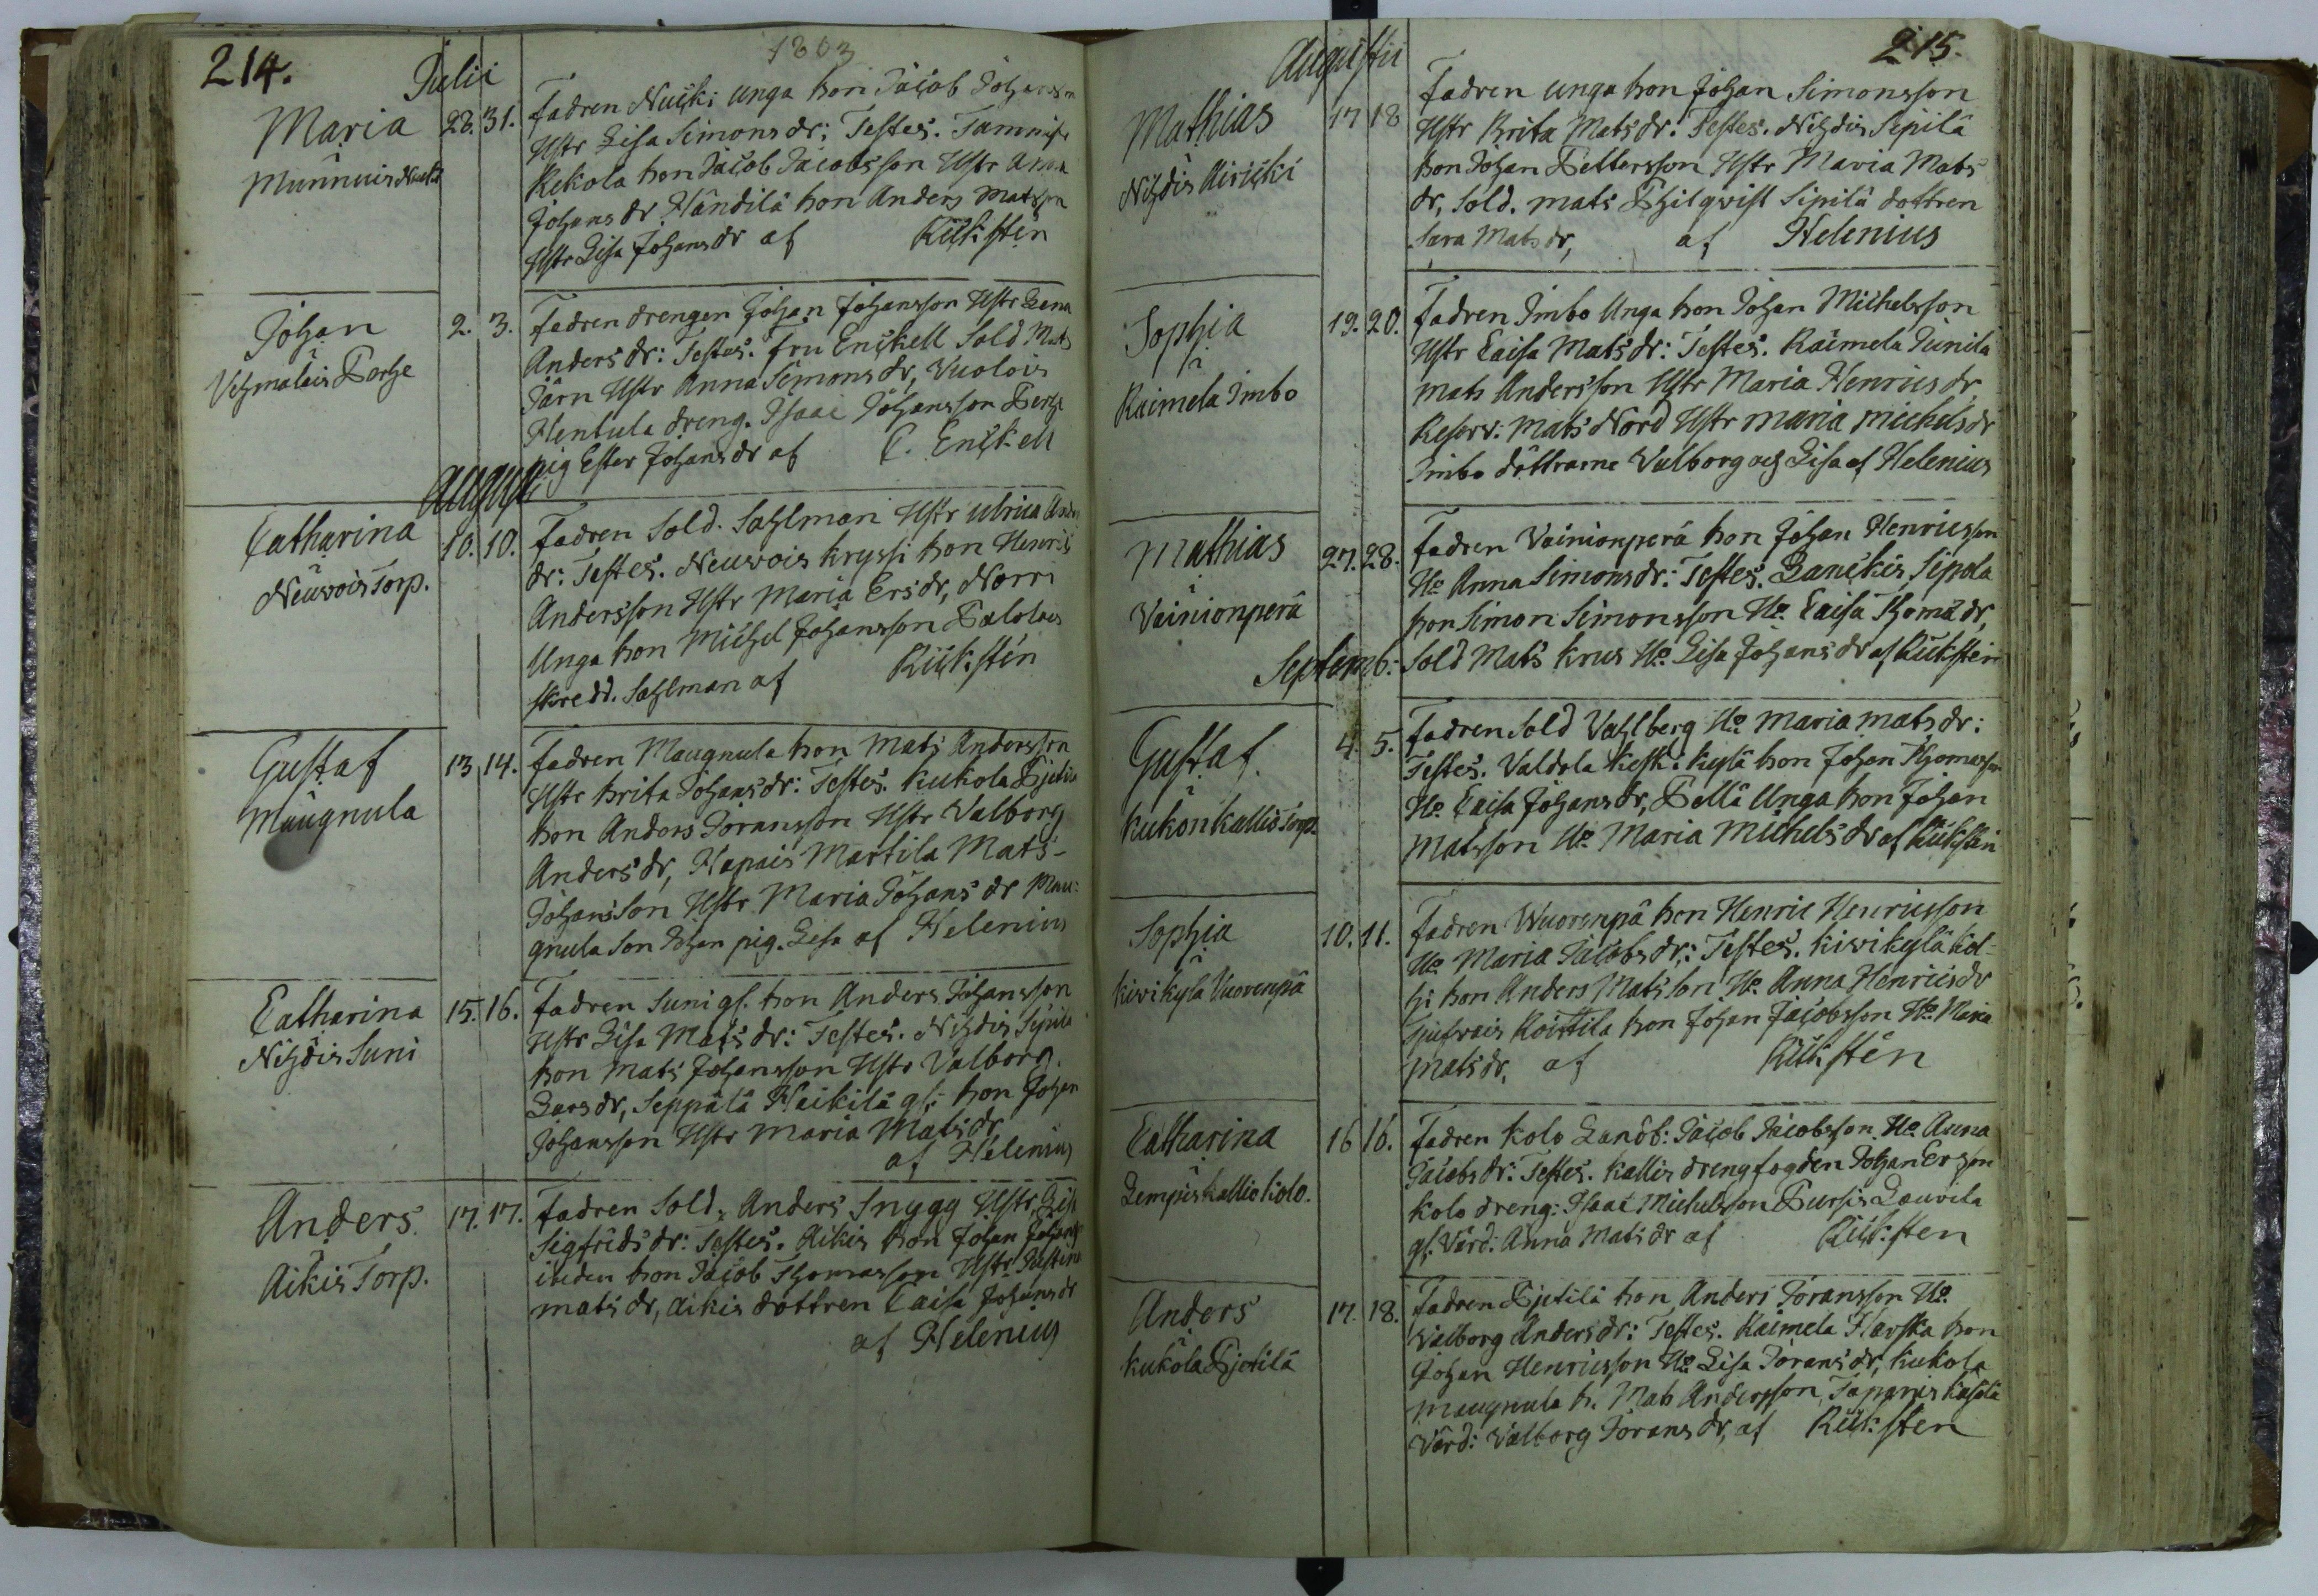 214.
1803
Julii
Maria 28. 31.
Munnuis
Fadren Nuiki unga bon Jacob Johansson
Hstr Lisa Simons dr: Testes.
Rekola bon Jacob Jacobsson Hstr Anna
Johans dr Händilä bon Anders Matsson
Hstr Lisa Johans dr af
Johan 2. 3.
Vehmalais Torp
Fadren drengen Johan Johansson Hstr Lena
Anders dr: Testes. fru Enckell Sold Mats
Järn Hstr Anna Simons dr, Vuolois
Hentula dreng. Isaac Johansson
pig Ester Johans dr af C. Enckell
August
Catharina 10. 10.
Neuvois Torp.
Fadren Sold. Sahlman Hstr Ulrica Anders
dr: Testes. Neuvois Kryssi bon Henric
Andersson Hstr Maria Ers dr, Norri
Unga bon Michel Johansson
skredd. Sahlman af
Gustaf 13 14.
Maugnula
Fadren Maugnula bon Mats Andersson
Hstr Brita Johans dr: Testes. Kukola Pjetilä
bon Anders Joransson Hstr Valborg
Anders dr, Hapais Martila Mats
Johansson Hstr Maria Johans dr Mau:
gnula Son Johan pig. Lisa af Helenius
Catharina 15. 16.
Nihdis Suni
Fadren Suni gl. bon Anders Johansson
Hstr Lisa Mats dr: Testes. Nihdis Sipilä
bon Mats Johansson Hstr Valborg
Lars dr, Seppälä Heikilä gl: bon Johan
Johansson Hstr Maria Mats dr
af Helenius
Anders 17. 17.
Äikis Torp.
Fadren Sold. Anders Snygg Hstr Lisa
Sigfrids dr: Testes. Äikis bon Johan Johans
bon Jacob Thomasson Hstr Justina
Mats dr, Äikis dottren Caisa Johans dr
af Helenius
215.
Augusti
Mathias 17 18
Nihdis Äiricki
Fadren unga bon Johan Simonsson
Hstr Brita Mats dr: Testes. Nihdis Sipilä
bon Johan Pettersson Hstr Maria Mats
dr, Sold. Mats Thilqvist Sipilä dottren
Sara Mats dr, af Helenius
Sophia 19. 20.
Raimela Imbo
Fadren Imbo Unga bon Johan Michelsson
Hstr Caisa Mats dr: Testes. Raimela Junila
Mats Andersson Hstr Maria Henrics dr
Reserv: Mats Nord Hstr Maria Michels dr
Imbo döttrarne Valborg och Lisa af Helenius
Mathias 27. 28.
Vainionperä
Fadren Vainionperä bon Johan Henricsson
Ho Anna Simons dr: Testes. Lanckis Sipola
bon Simon Simonsson Ho. Caisa Thoma dr,
Sold Mats Krus Ho. Lisa Johans dr af
Septemb:
Gustaf 4. 5.
Kukonkallio Torp.
Fadren Sold Vahlberg Ho Maria Mats dr:
Testes. Valdola Keski kylä bon Johan Thomasson
Ho. Caisa Johans dr, Pellä Unga bon Johan
Matsson Ho. Maria Michels dr af
Sophia 10. 11.
Kivikylä Vuorenpä
Fadren Wuorenpä bon Henric Henricsson
Ho Maria Jacobs dr: Testes. Kivikylä
bon Anders Matsson Ho. Anna Henrics dr
Koistila bon Johan Jacobsson Ho. Maria
Mats dr, af
Catharina 16 16.
Lempis kallio kolo.
Fadren Kolo Landb: Jacob Jacobsson Ho. Anna
Jacobs dr: Testes. Kallis drengfogden Johan Ersson
Kolo dreng: Isaac Michelsson Pursis Lauvila
gl. Värd: Anna Mats dr af
Anders 17. 18.
Kukola Pjetilä
Fadren Pjetilä bon Anders Joransson Ho
Valborg Anders dr: Testes. Raimela Harska bon
Johan Henricsson Ho Lisa Jorans dr, Kukola
Maugnula b. Mats Andersson
Värd: Valborg Jorans dr, af